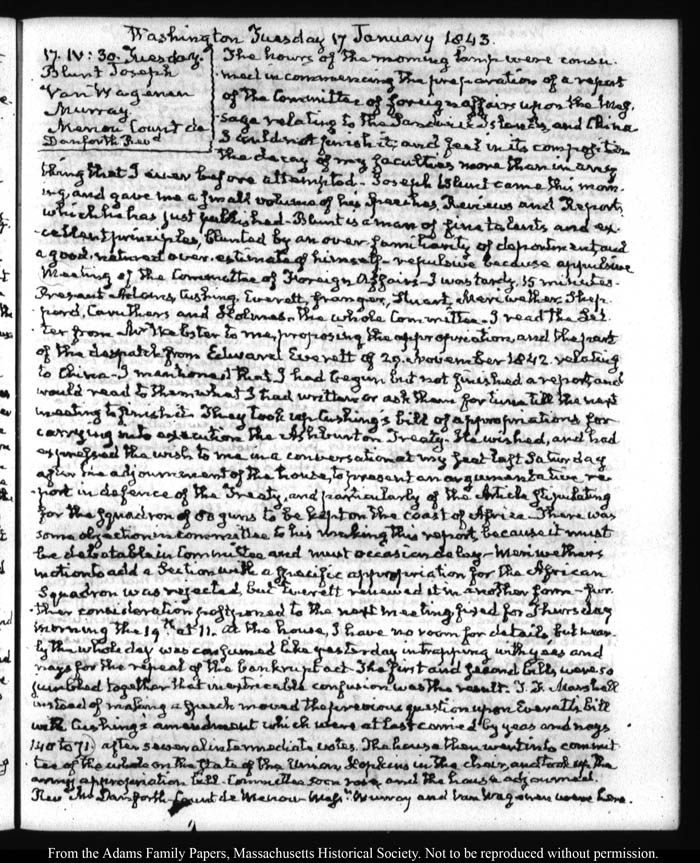 Washington Tuesday 17 January 1843.
17. IV: 30. Tuesday.
Blunt Joseph
Van Wagenen
Murray
Menou Count de
Danforth Revd
The hours of the morning lamp were consu-
med in commencing the preparation of a report
of the Committee of foreign affairs upon the Mes-
sage relating to the Sandwich Islands, and China
I could not finish it, and feel in its composition
the decay of my faculties more than in any
thing that I ever before attempted. Joseph Blunt came this morn-
ing, and gave me a small volume of his Speeches, Reviews and Reports,
which he has just published. Blunt is a man of fine talents and ex-
cellent principles, blunted by an over familiarity of deportment, and
a good-natured over-estimate of himself - repulsive because appulsive
Meeting of the Committee of Foreign Affairs - I was tardy 35 minutes.
Present Adams, Cushing, Everett, Granger, Stuart, Meriwether, Shep-
perd, Caruthers and Holmes. The whole Committee. I read the Let-
ter from Mr Webster to me, proposing the appropriation, and the part
of the despatch from Edward Everett of 29. November 1842. relating
to China. I mentioned that I had begun but not finished a report, and
would read to them what I had written or ask them for time till the next
meeting to finish it. They took up Cushing's bill of appropriations for
carrying into execution the Ashburton Treaty. He wished, and had
expressed the wish to me in a conversation at my seat last Saturday
after the adjournment of the house, to present an argumentative re-
port in defence of the Treaty, and particularly of the Article stipulating
for the Squadron of 80 guns to be kept on the coast of Africa. There was
some objection in committee to his making this report, because it must
be debatable in Committee and must occasion delay - Meriwether's
motion to add a Section with a specific appropriation for the African
Squadron was rejected, but Everett renewed it in another form - fur-
ther consideration postponed to the next meeting fixed for Thursday
morning the 19th at 11. At the house, I have no room for details, but near-
ly the whole day was consumed like yesterday in trapping with yeas and
nays for the repeal of the bankrupt act. The first and second bills, were so
jumbled together that inextricable confusion was the result. T. F. Marshall
instead of making a speech moved the previous question upon Everett's bill
with Cushing's amendment which were at last carried by yeas and nays
140 to 71. after several intermediate votes. The house then went into commit-
tee of the whole on the state of the Union, Hopkins in the chair, and took up the
army appropriation bill. Committee soon rose and the house adjourned.
Revd Thos Danforth - Count de Menou - Murray and Van Wagenen were here.
From the Adams Family Papers, Massachusetts Historical Society. Not to be reproduced without permission.